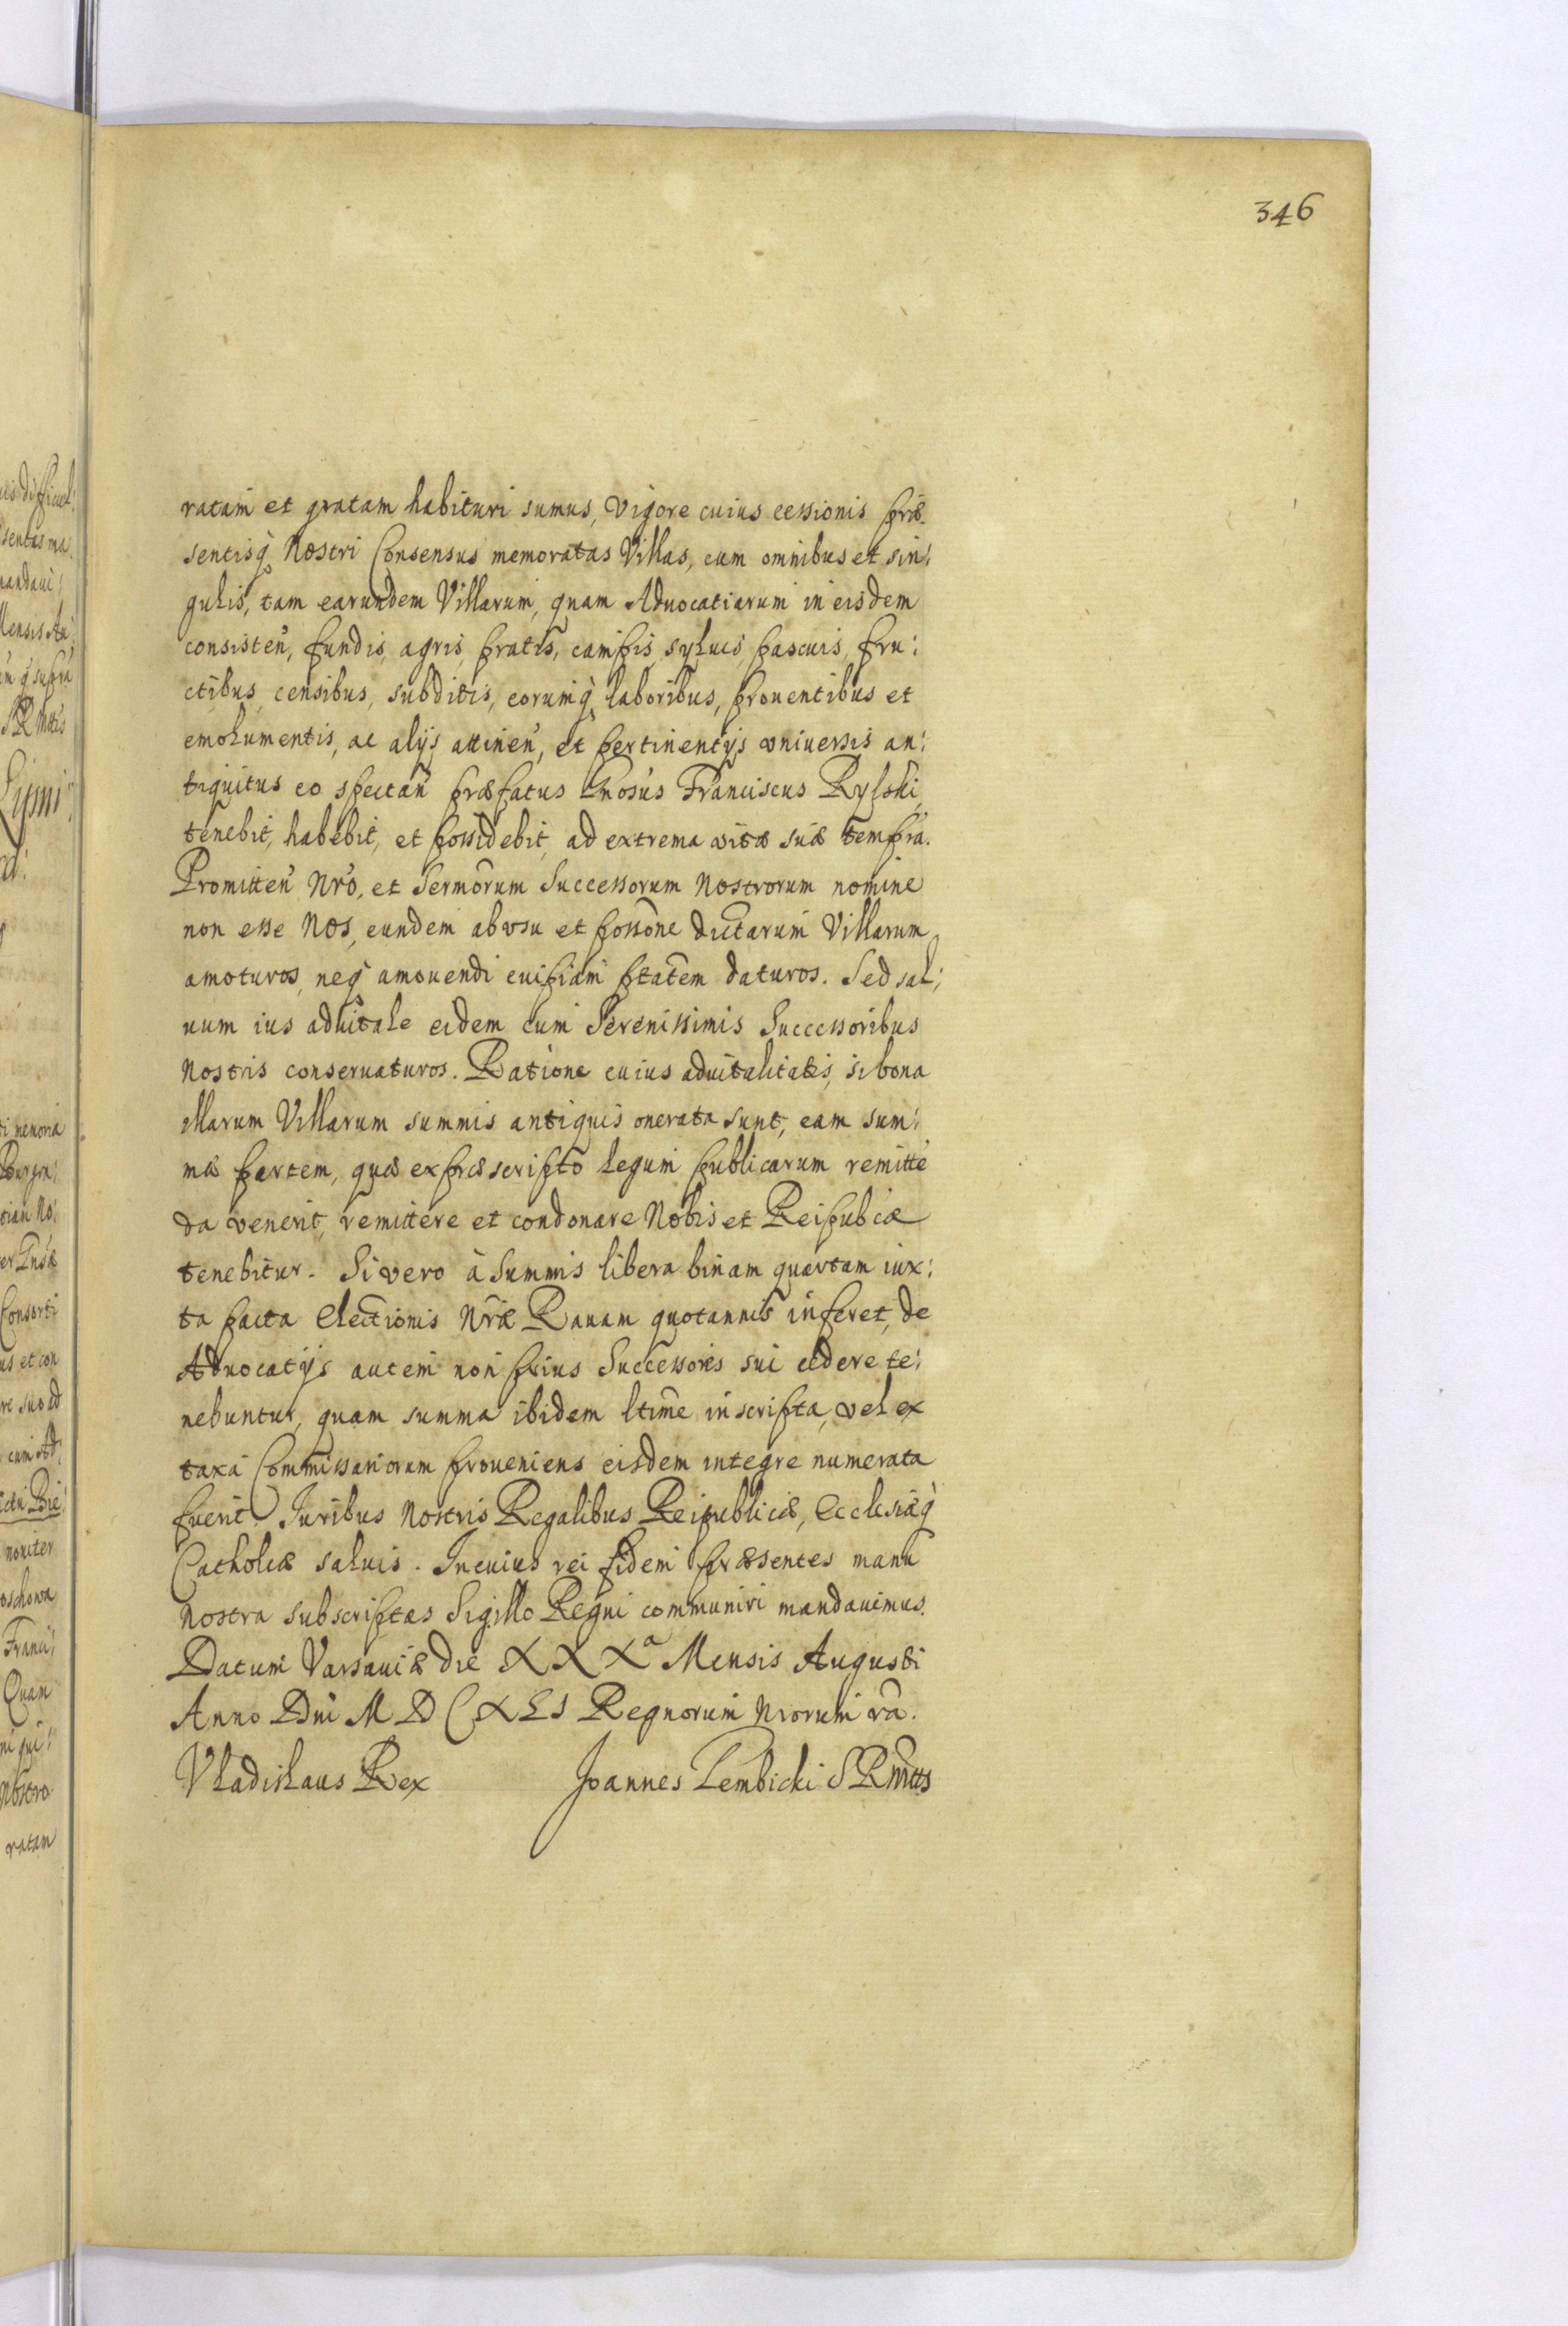 346
ratam et gratam habituri sumus, vigore cuius cessionis præ-
sentisq̀ Nostri Consensus memoratas Villas, cum omnibus et sin:
gulis, tam earundem Villarum, quam Aduocatiarum in eisdem
consisten̄, fundis, agris, pratis, campis, syluis, pascuis, fru:
ctibus, censibus, subditis, eorumq̀ laboribus, prouentibus et
emolumentis, ac alijs attinen̄, et pertinentijs vniuersis an:
tiquitus eo spectan̄ præfatus Gnosus Franciscus Rylski,
tenebit, habebit, et possidebit, ad extrema vitæ suæ tempra.
Promitten̄ Nro, et Sermorum Successorum Nostrorum nomine
non esse Nos, eundem ab vsu et possone dictarum Villarum
amoturos, neq̀ amouendi cuipiam ptatem daturos. Sed sal:
uum ius aduitale eidem cum Serenissimis Successoribus
Nostris conseruaturos. Ratione cuius aduitalitatis, si bona
illarum Villarum summis antiquis onerata sunt, eam sum:
mæ partem, quæ ex præscripto legum publicarum remitte
da venerit, remittere et condonare Nobis et Reipubcæ
tenebitur. Si vero à Summis libera binam quartam iux:
ta pacta Electionis Nræ Rauam quotannis inferet, de
Aduocatijs autem non prius Successores sui cedere te:
nebuntur, quam summa ibidem ltime inscripta, vel ex
taxa Commissariorum proueniens eisdem integre numerata
fuerit. Iuribus Nostris Regalibus Reipublicæ, Ecclesiæq̀
Catholicæ saluis. In cuius rei fidem præsentes manu
Nostra subscriptas Sigillo Regni communiri mandauimus.
Datum Varsauiæ die XXXa Mensis Augusti
Anno Dni MDCXLI Regnorum Nrorum ra.
Vladislaus Rex Joannes Lembicki SRMtts